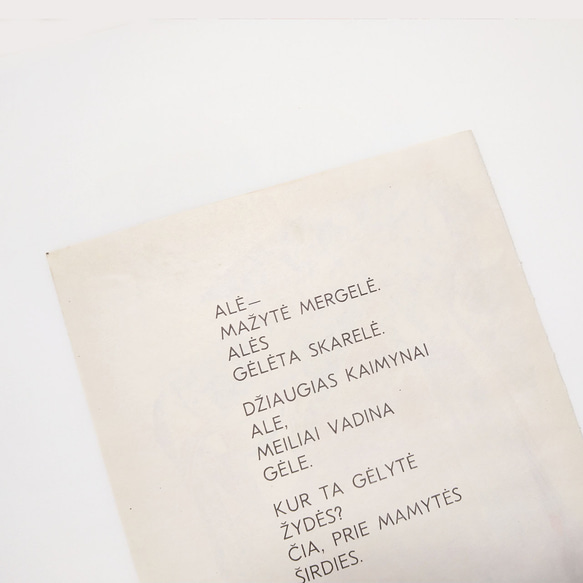 ALĖ—
MAŽYTĖ MERGELĖ.
ALĖS
GĖLĖTA SKARELĖ.
DŽIAUGIAS KAIMYNAI
ALE,
MEILIAI VADINA
GĖLE.
KUR TA GĖLYTĖ
ŽYDĖS?
ČIA, PRIE MAMYTĖS
ŠIRDIES.